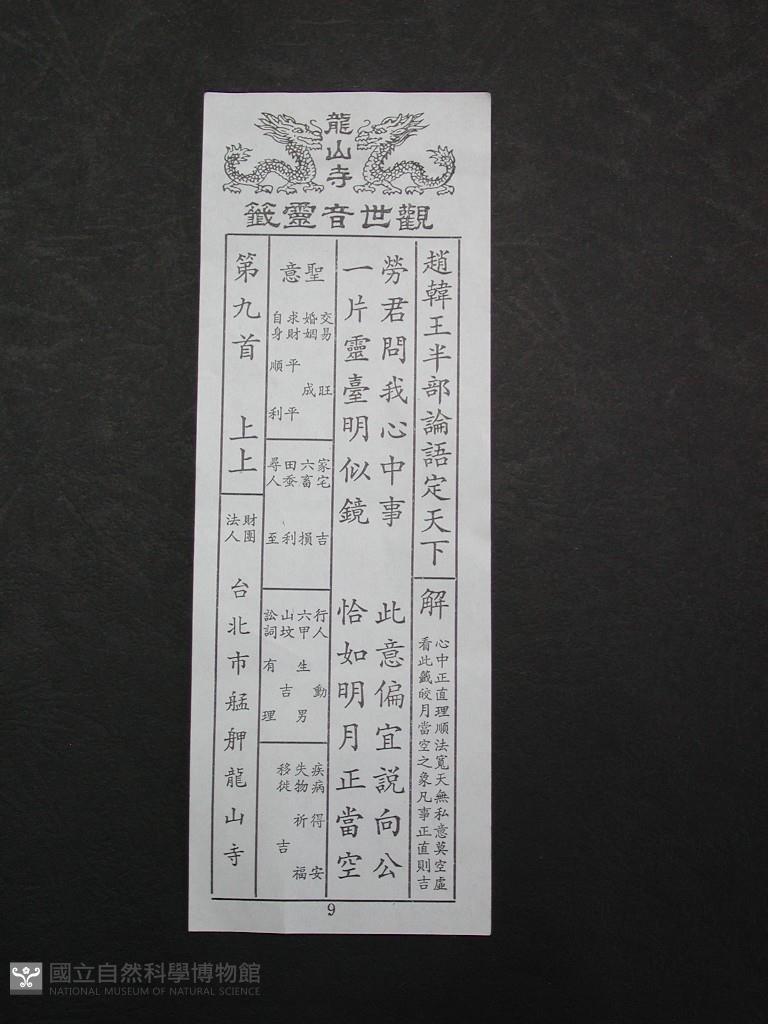 龍山寺
觀世音靈籤
趙韓王半部論語定天下
解
心中正直理順法寬天無私意莫空虛
看此籤皎月當空之象凡事正直則吉
勞君問我心中事
此意偏宜説向公
一片靈臺明似鏡
恰如明月正當空
聖意
交易 旺
婚姻 成
求財 平平
自身 順利
家宅 吉
六畜 損
田蚕 利
尋人 至
行人 動
六甲 生男
山坟 吉
訟詞 有理
疾病 得安
失物 祈福
移徙 吉
第九首 上上
財團法人
台北市艋舺龍山寺
9
國立自然科學博物館
NATIONAL MUSEUM OF NATURAL SCIENCE